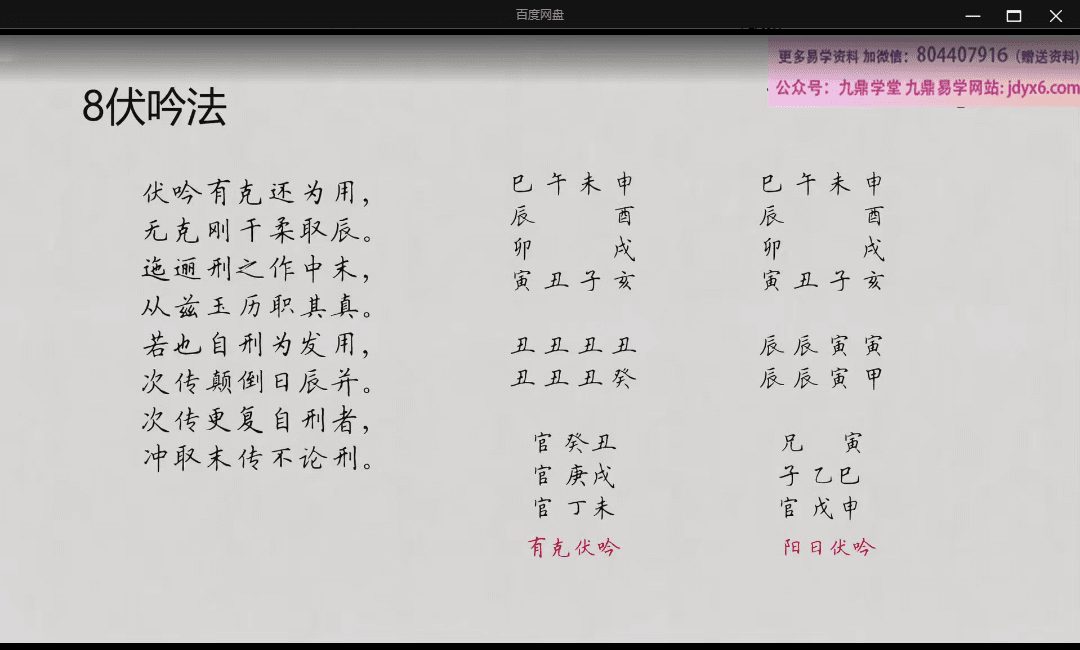 百度网盘
更多易学资料 加微信：804407916（赠送资料)
公众号：九鼎学堂 九鼎易学网站: jdyx6.com
8伏吟法
伏吟有克还为用，
无克刚干柔取辰。
迤逦刑之作中末，
从兹玉历职其真。
若也自刑为发用，
次传颠倒日辰并。
次传更复自刑者，
冲取末传不论刑。
巳 午 未 申
辰 酉
卯 戌
寅 丑 子 亥
丑 丑 丑 丑
丑 丑 丑 癸
官 癸丑
官 庚戌
官 丁未
有克伏吟
巳 午 未 申
辰 酉
卯 戌
寅 丑 子 亥
辰 辰 寅 寅
辰 辰 寅 甲
兄 寅
子 乙巳
官 戊申
阳日伏吟